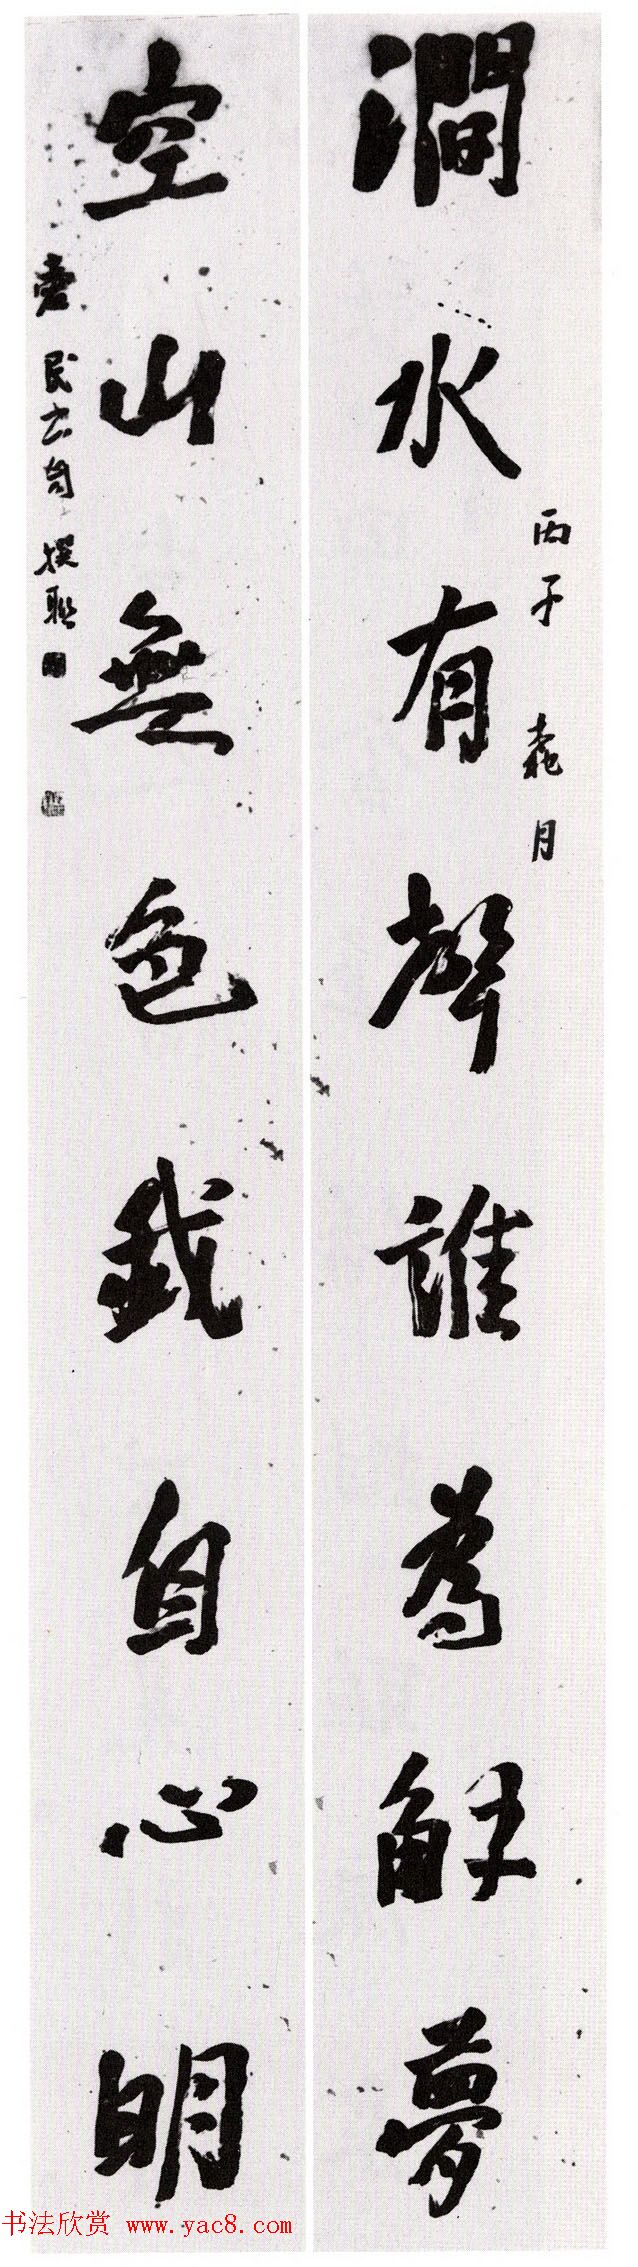 澗水有聲誰為解夢
丙子 月
空山無色我自心明
民 自撰聯
书法欣赏 www.yac8.com